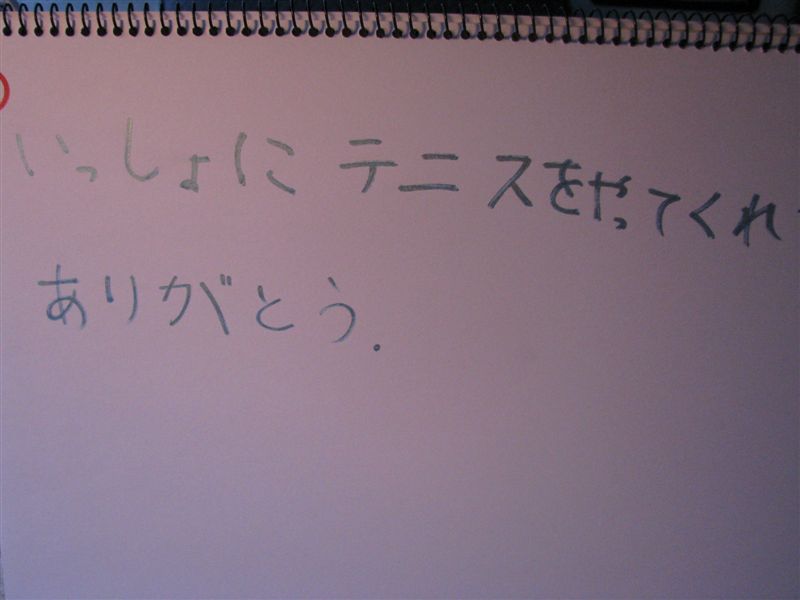 いっしょに テニスをやってくれ
ありがとう.